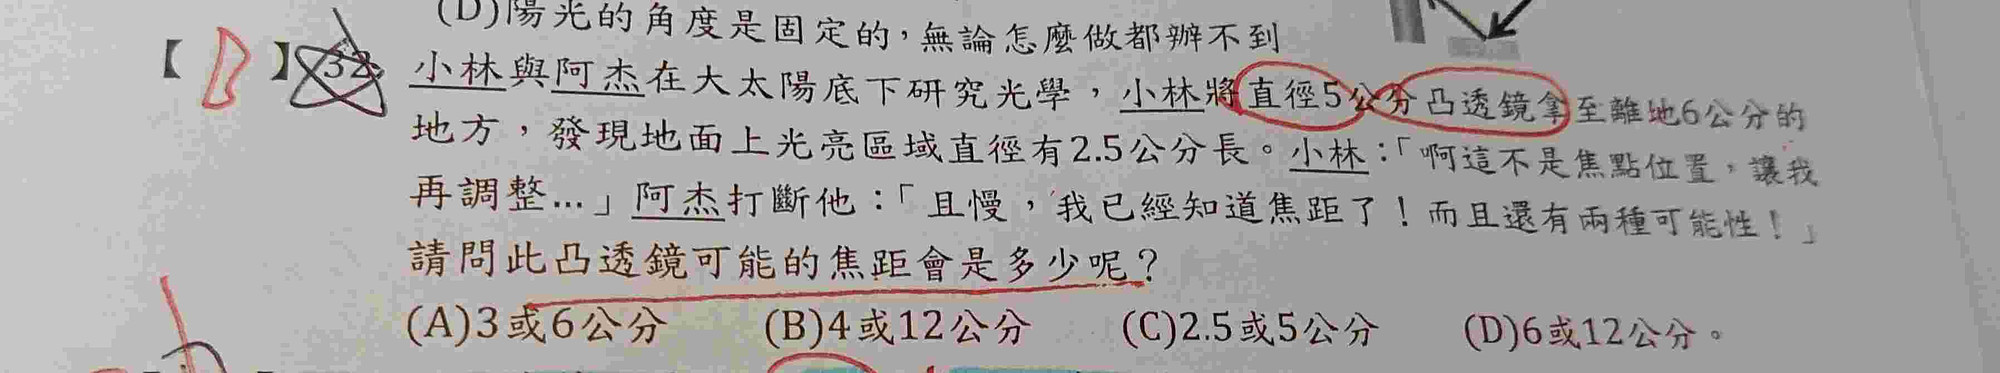 (D)陽光的角度是固定的，無論怎麼做都辦不到
【B】32. 小林與阿杰在大太陽底下研究光學，小林將直徑5公分凸透鏡拿至離地6公分的
地方，發現地面上光亮區域直徑有2.5公分長。小林：「啊這不是焦點位置，讓我
再調整...」阿杰打斷他：「且慢，我已經知道焦距了！而且還有兩種可能性！」
請問此凸透鏡可能的焦距會是多少呢？
(A)3或6公分 (B)4或12公分 (C)2.5或5公分 (D)6或12公分。